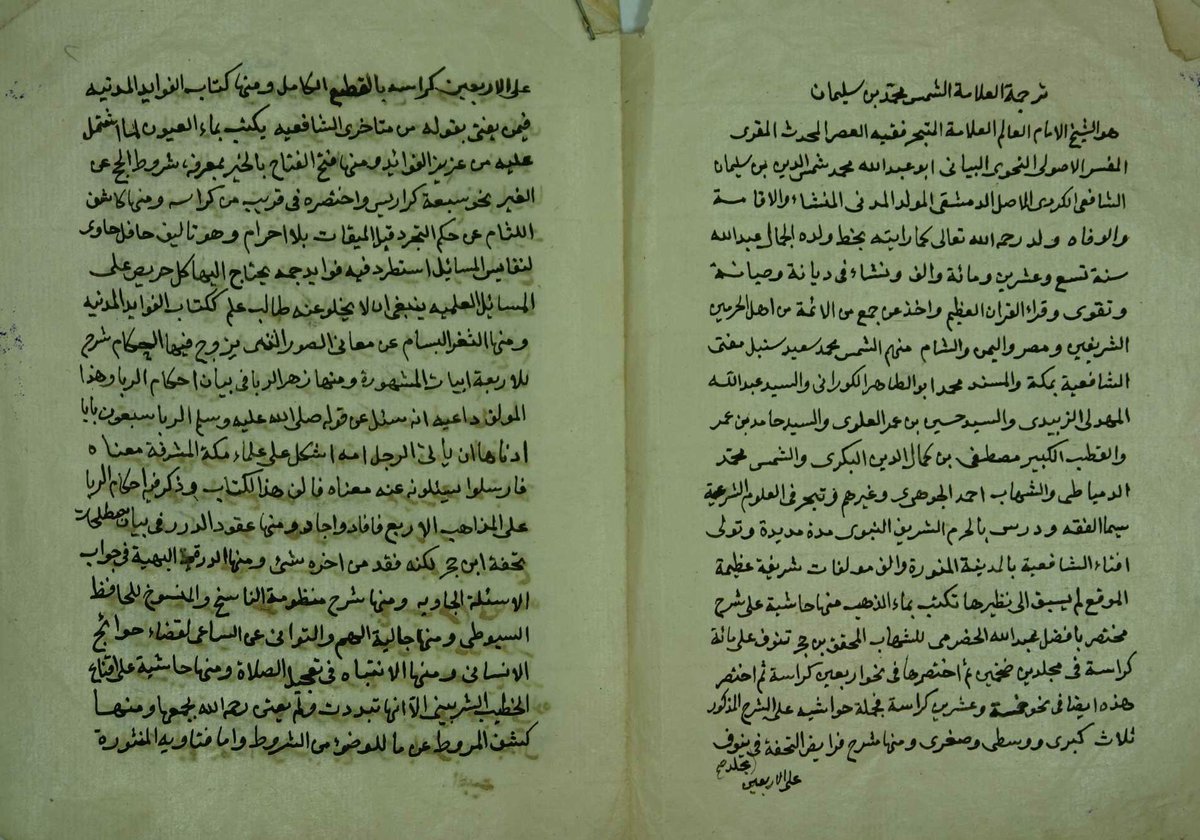 ترجمة العلامة الشمس محمد بن سليمان
هو الشيخ الامام العالم العلامة المتبحر فقيه العصر المحدث المقرى
المفسر الاصولى النحوى البيانى ابو عبد الله محمد شمس الدين بن سليمان
الشافعى الكردى الاصل الدمشقى المولد المدنى المنشاء والاقامة
والوفاه ولد رحمه الله تعالى كما رايته بخط ولده الجمال عبد الله
سنة تسع وعشرين ومائة والف ونشاء فى ديانة وصيانة
وتقوى وقراء القران العظيم واخذ عن جمع من الائمة من اهل الحرمين
الشريفين ومصر واليمن والشام منهم الشمس محمد سعيد سنبل مفتى
الشافعية بمكة والمسند محمد ابو الطاهر الكورانى والسيد عبد الله
المهدلى الزبيدى والسيد حسين بن عمر العلوى والسيد حامد بن عمر
والقطب الكبير مصطفى بن كمال الدين البكرى والشمس محمد
الدمياطى والشهاب احمد الجوهرى وغيرهم وتبحر فى العلوم الشرعية
سيما الفقه ودرس بالحرم الشريف النبوى مدة مديدة وتولى
افتاء الشافعية بالمدينة المنورة والف مولفات شريفة عظيمة
الموقع لم يسبق الى نظيرها تكتب بماء الذهب منها حاشية على شرح
مختصر بافضل عبد الله الحضرمى للشهاب المحقق بن حجر تنوف على مائة
كراسة فى مجلدين ضخمين ثم اختصرها فى نحو اربعين كراسة ثم اختصر
هذه ايضا فى نحو خمسة وعشرين كراسة فجملة حواشيه على الشرح المذكور
ثلاث كبرى ووسطى وصغرى ومنها شرح فرايض التحفة فى مجلد ينوف
على الاربعين
على الاربعين كراسه بالقطيع الكامل ومنها كتاب الفوايد المدنيه
فيمن يفتى بقوله من متاخرى الشافعيه يكتب بماء العيون لما اشتمل
عليه من عزيز الفوائد ومنها فتح الفتاح بالخير بمعرفة شروط الحج عن
الغير نحو سبعة كراريس واختصره فى قريب من كراسه ومنها كاشف
اللثام عن حكم التجرد قبل الميقات بلا احرام وهو تاليف حافل حاوى
لنفايس المسائل استطرد فيه فوايد جمه يحتاج اليها كل حريص على
المسائل العلميه ينبغى ان لا يخلو عنه طالب علم ككتاب الفوايد المدنيه
ومنها الثغر البسام عن معانى الصور التى يزوج فيها الحكام شرح
للاربعة ابيات المشهورة ومنها زهر الربا فى بيان احكام الربا وهذا
المولف داعيه انه سئل عن قوله صلى الله عليه وسلم الربا سبعون بابا
ادناها ان يأتى الرجل امه اشكل على علماء مكة المشرفة معناه
فارسلوا يسئلونه عنه معناه فالف هذا الكتاب وذكر فيه احكام الربا
على المذاهب الاربع فافاد واجاد ومنها عقود الدرر فى بيان مصطلحات
تحفة ابن حجر لكنه فقد من اخره شئ ومنها الدرة البهية فى جواب
الاسئلة الجاويه ومنها شرح منظومة الناسخ والمنسوخ للحافظ
السيوطى ومنها جالية الهم والتوانى عن الساعى لقضاء حوائج
الانسانى ومنها الانتباه فى تعجيل الصلاة ومنها حاشية على اقناع
الخطيب الشربينى الا انها تبددت ولم يعتن رحمه الله بجمعها ومنها
كشف المروط عن ما للوضوء من الشروط واما فتاويه المنثورة